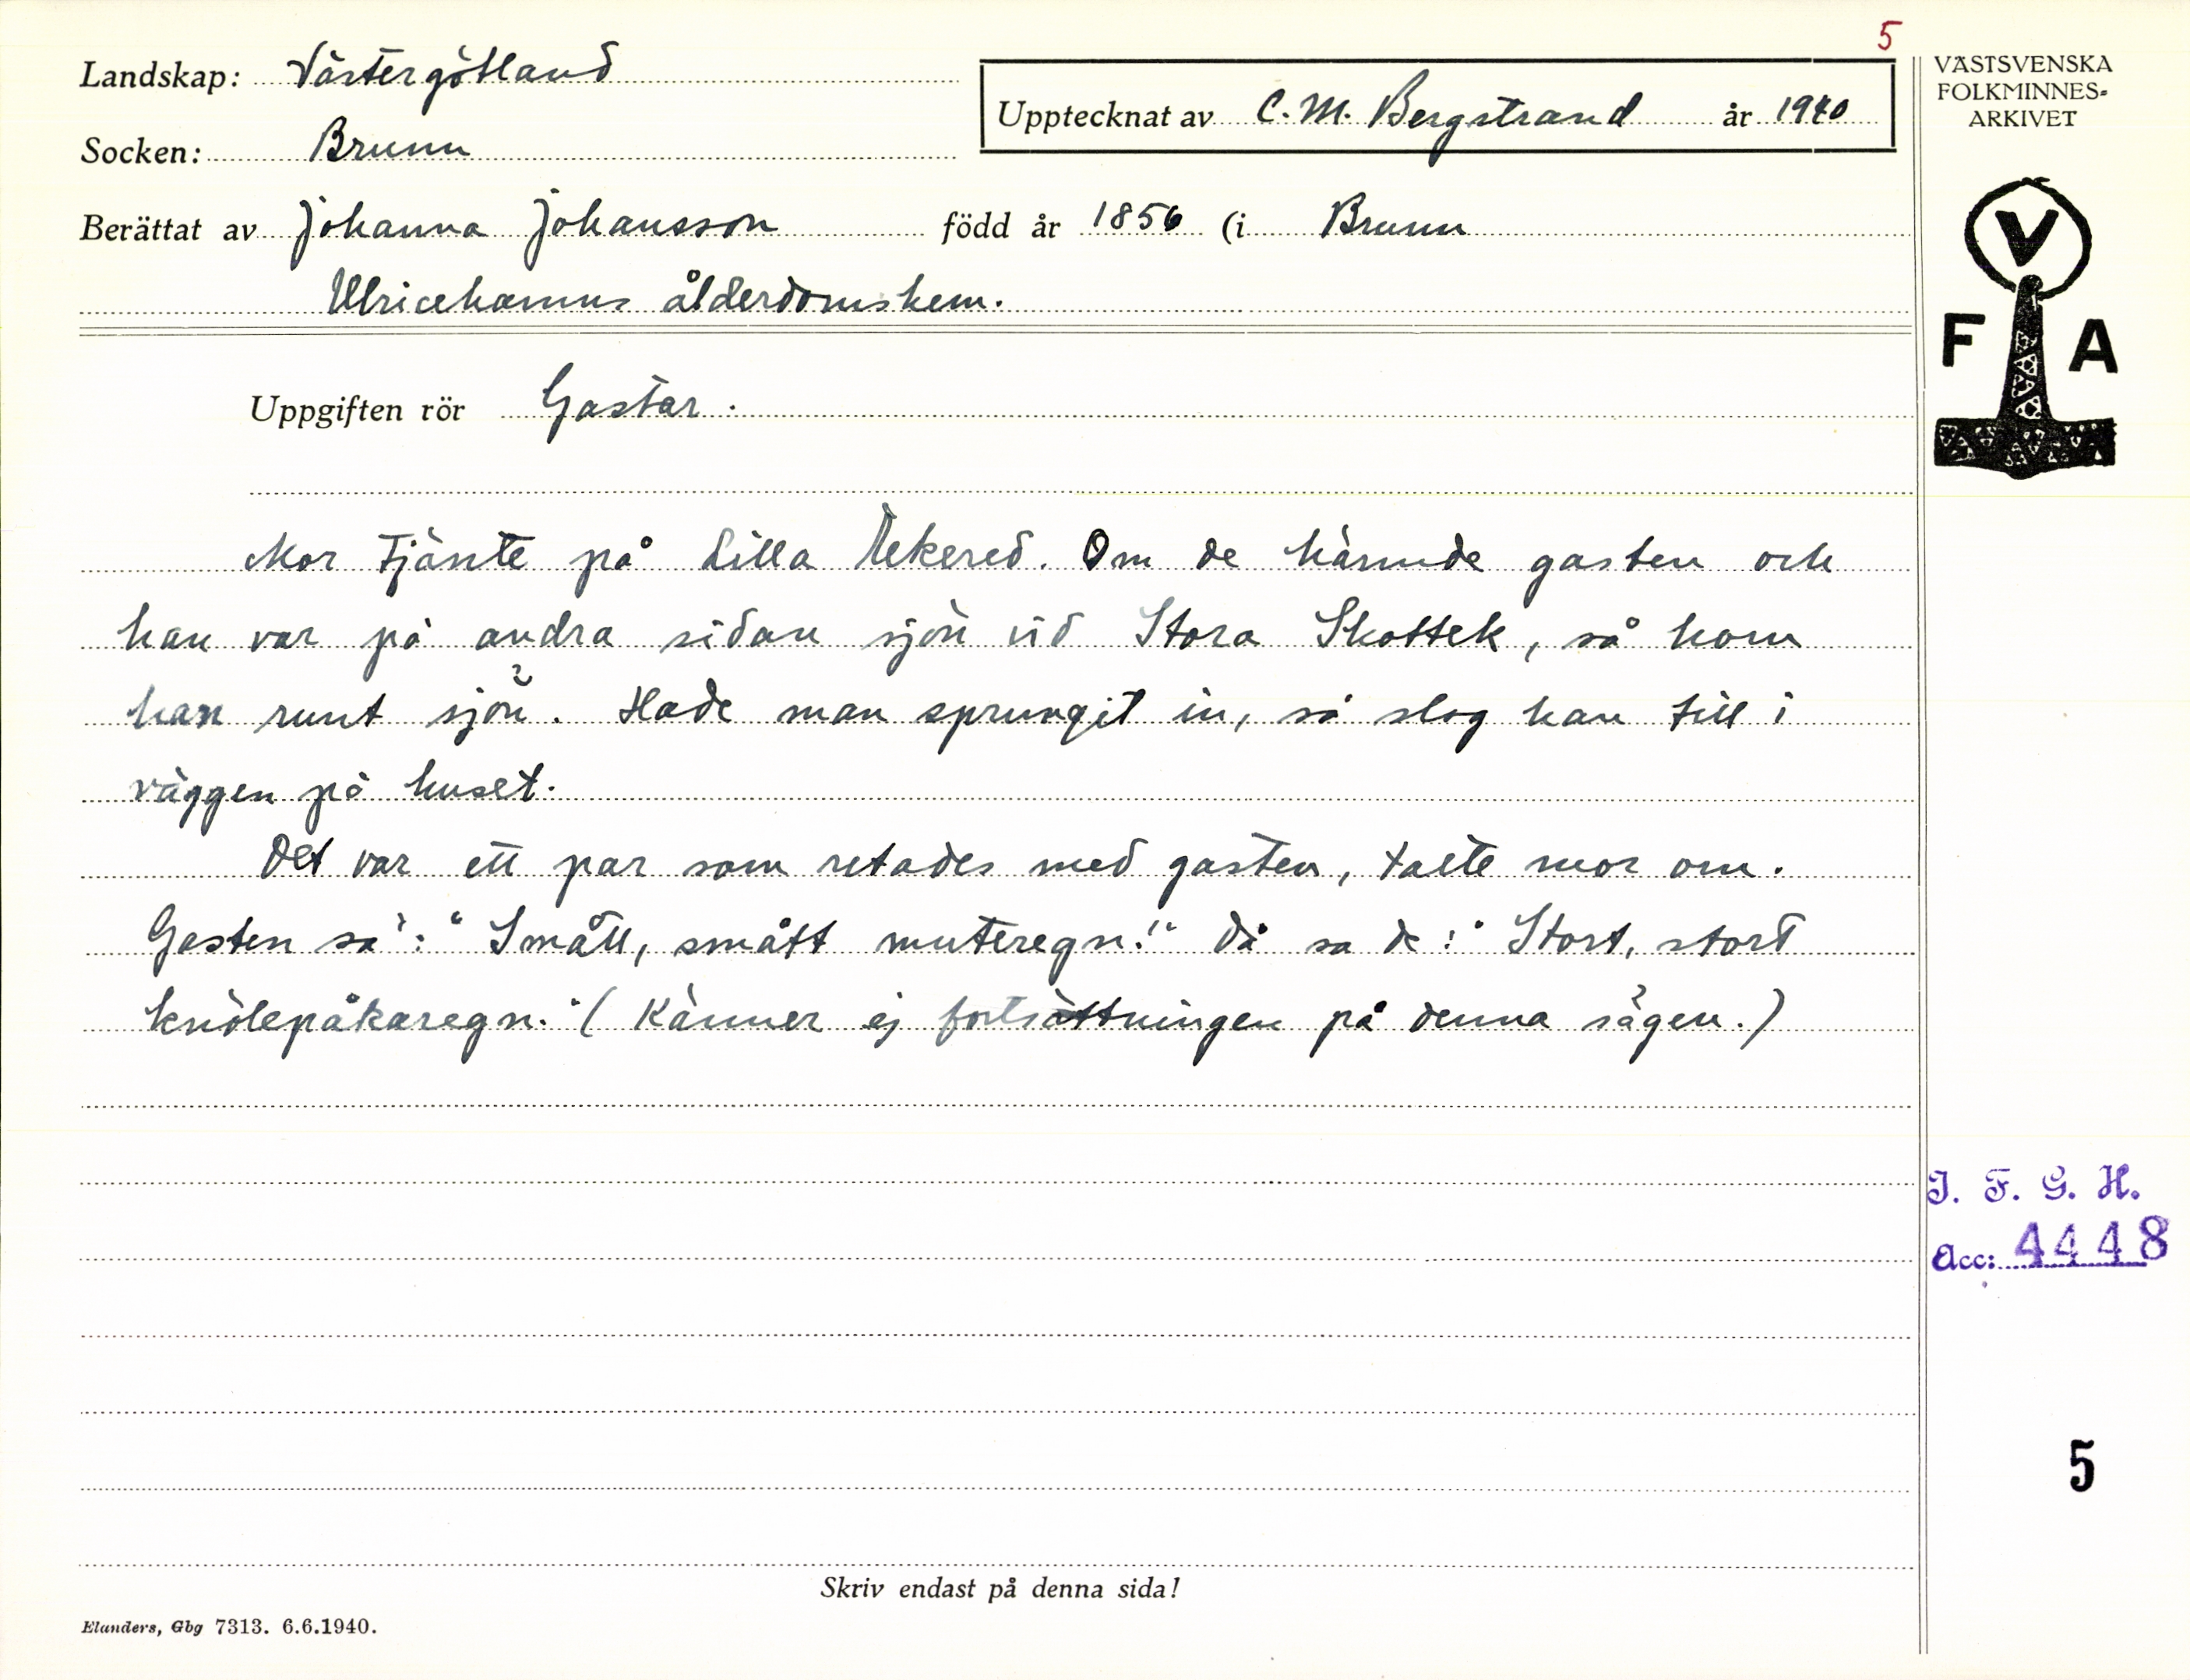 5
Landskap: Västergötland
Upptecknat av C. M. Bergstrand år 1940
Socken: Brunn
Berättat av Johanna Johansson född år 1856 (i Brunn
Ulricehamns ålderdomshem.
VÄSTSVENSKA
FOLKMINNES-
ARKIVET
V
F A
Uppgiften rör Gastar.
Mor tjänte på Lilla Ekered. Om de härmde gasten och
han var på andra sidan sjön vid Stora Skottek, så kom
han runt sjön. Hade man sprungit in, så slog han till i
väggen på huset.
Det var ett par som retades med gasten, talte mor om.
Gasten sa': "Smått, smått muteregn!" Då sa de: "Stort, stort
knölepåkaregn." (Känner ej fortsättningen på denna sägen.)
I. F. G. H.
Acc: 4448
5
Skriv endast på denna sida!
Elanders, Gbg 7313. 6.6.1940.